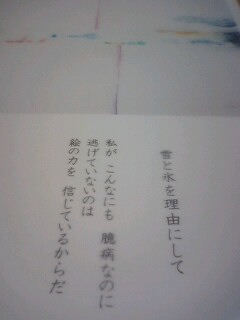 雪と氷を理由にして
私が こんなにも 臆病なのに
逃げていないのは
絵の力を 信じているからだ